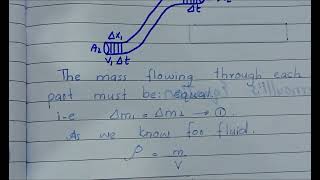 Δx₁
A₂
V₁ Δt
Δt
The mass flowing through each
part must be equal
i-e Δm₁ = Δm₂ → ①
As we know for fluid.
ρ = m
V